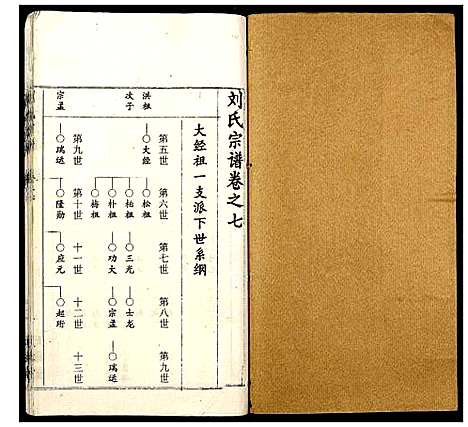 刘氏宗谱卷之七
大经祖一支派下世系纲
洪祖
次子
宗孟
第五世
大经
第六世
松祖
柏祖
朴祖
梅祖
第七世
三光
功大
第八世
士龙
宗孟
第九世
瑞运
第九世
瑞运
第十世
隆勋
十一世
应元
十二世
起珩
十三世